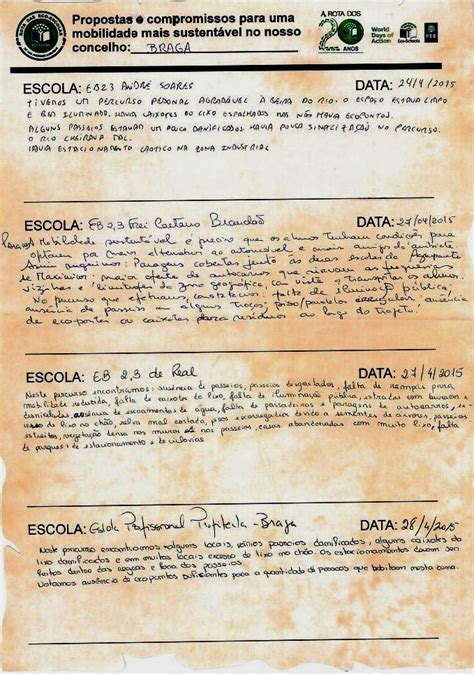 Propostas e compromissos para uma
mobilidade mais sustentável no nosso
concelho: BRAGA
A ROTA DOS
20 ANOS
World Days of Action
Eco-Schools
FEE
ESCOLA: EB23 ANDRÉ SOARES DATA: 24/4/2015
TIVEMOS UM PERCURSO PEDONAL AGRADÁVEL À BEIRA DO RIO. O ESPAÇO ESTAVA LIMPO
E BEM ILUMINADO. HAVIA CAIXOTES DO LIXO ESPALHADOS MAS NÃO HAVIA ECOPONTOS.
ALGUNS PASSEIOS ESTAVAM UM POUCO DANIFICADOS. HAVIA POUCA SINALIZAÇÃO NO PERCURSO.
O RIO CHEIRAVA MAL.
HAVIA ESTACIONAMENTO CAÓTICO NA ZONA INDUSTRIAL
ESCOLA: EB 2,3 Frei Caetano Brandão DATA: 27/04/2015
Mobilidade sustentável é preciso que os alunos tenham condições para
optarem por meios alternativos ao automóvel e mais amigos do ambiente
Assim sugerimos: Paragens cobertas junto às duas escolas do Agrupamento
de Maximinos: maior oferta de autocarros que sirvam as freguesias
vizinhas e limitantes da zona geográfica, com vista a transportar os alunos.
No percurso que efetuamos, constatamos: falta de iluminação pública,
ausência de passeios em alguns troços, piso/paralelos irregular, ausência
de ecopontos ou caixotes para resíduos ao longo do trajeto.
ESCOLA: EB 2,3 de Real DATA: 27/4/2015
Neste percurso encontramos: ausência de passeios, passeios desgastados, falta de rampas para
mobilidade reduzida, falta de caixotes do lixo, falta de iluminação pública, estradas com buracos e
desniveladas, ausência de escoamentos de água, falta de passadeiras e paragens de autocarros,
de lixo no chão, relva mal cortada, piso escorregadio devido a sementes de árvores, passeios
estreitos, vegetação densa nos muros e nos passeios, casas abandonadas com muito lixo, falta
de parques de estacionamento e de ciclovias
ESCOLA: Escola Profissional Profitecla - Braga DATA: 28/4/2015
Neste percurso encontramos: alguns locais, vários passeios danificados, alguns caixotes do
lixo danificados e em muitos locais excesso de lixo no chão. Os estacionamentos devem ser
feitos dentro das regras e fora dos passeios.
Notamos ausência de ecopontos suficientes para a quantidade de pessoas que habitam nesta zona.